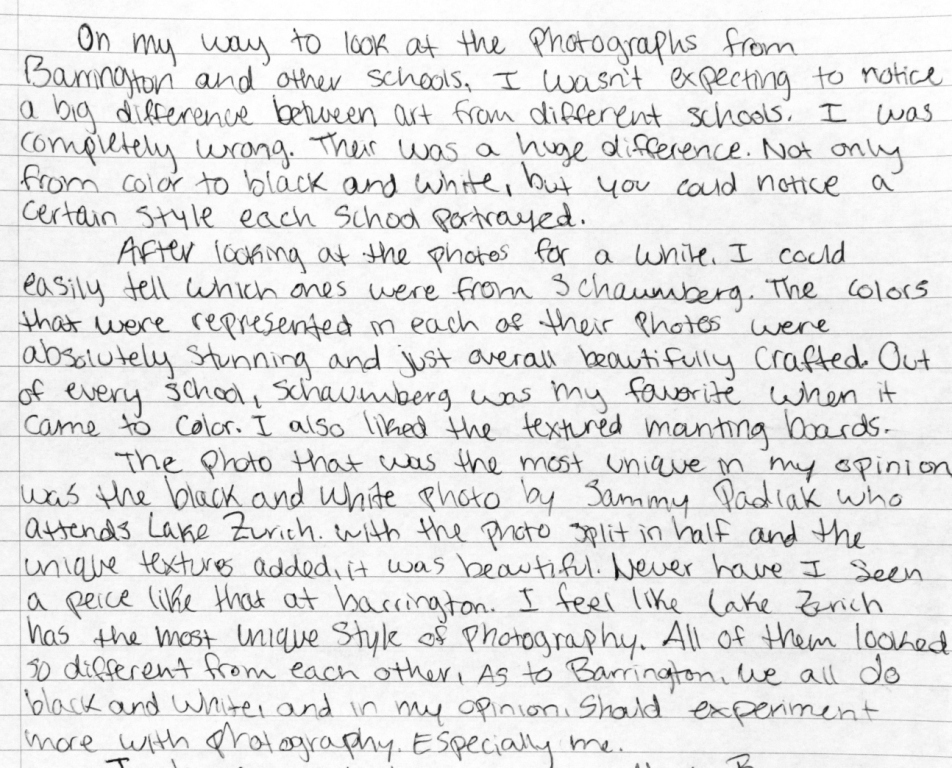 On my way to look at the photographs from
Barrington and other schools, I wasn't expecting to notice
a big difference between art from different schools. I was
completely wrong. Their was a huge difference. Not only
from color to black and white, but you could notice a
certain style each school portrayed.
After looking at the photos for a while, I could
easily tell which ones were from Schaumberg. The colors
that were represented in each of their photos were
absolutely stunning and just overall beautifully crafted. Out
of every school, Schaumberg was my favorite when it
came to color. I also liked the textured manting boards.
The photo that was the most unique in my opinion
was the black and white photo by Sammy Padiak who
attends Lake Zurich. With the photo split in half and the
unique textures added, it was beautiful. Never have I seen
a peice like that at barrington. I feel like Lake Zurich
has the most unique style of photography. All of them looked
so different from each other, As to Barrington, we all do
black and white, and in my opinion, should experiment
more with photography. Especially me.